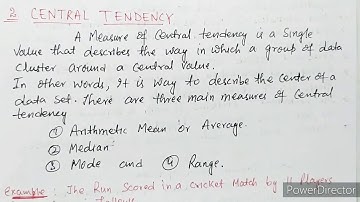 2 CENTRAL TENDENCY
A Measure of Central tendency is a Single
Value that describes the way in which a group of data
Cluster around a central value.
In other words, It is way to describe the center of a
data set. There are three main measures of Central
tendency
① Arithmetic Mean or Average.
② Median
③ Mode and ④ Range.
Example : The Run Scored in a cricket Match by 11 Players
follows
PowerDirector